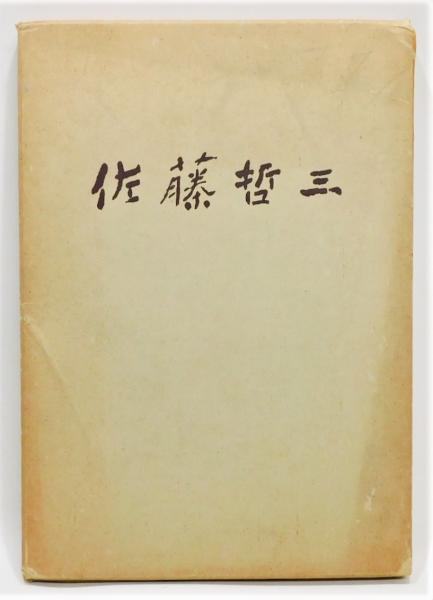 佐藤哲三